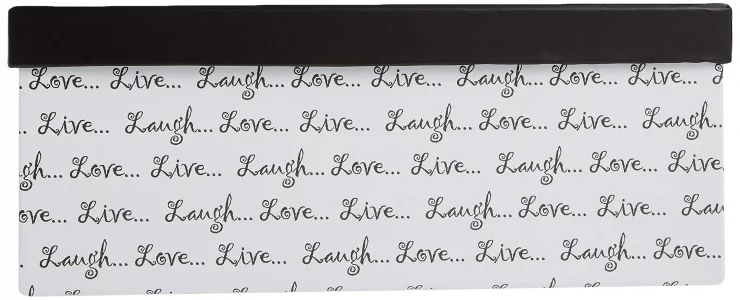 . Love... Live... Laugh... Love... Live... Laugh... Love... Live...
.. Live... Laugh... Love... Live... Laugh... Love... Live... Laugh..
gh... Love... Live... Laugh... Love... Live... Laugh... Love... Live...
ove... Live... Laugh... Love... Live... Laugh... Love... Live... Lau
. Laugh... Love... Live... Laugh... Love... Live... Laugh... Love...